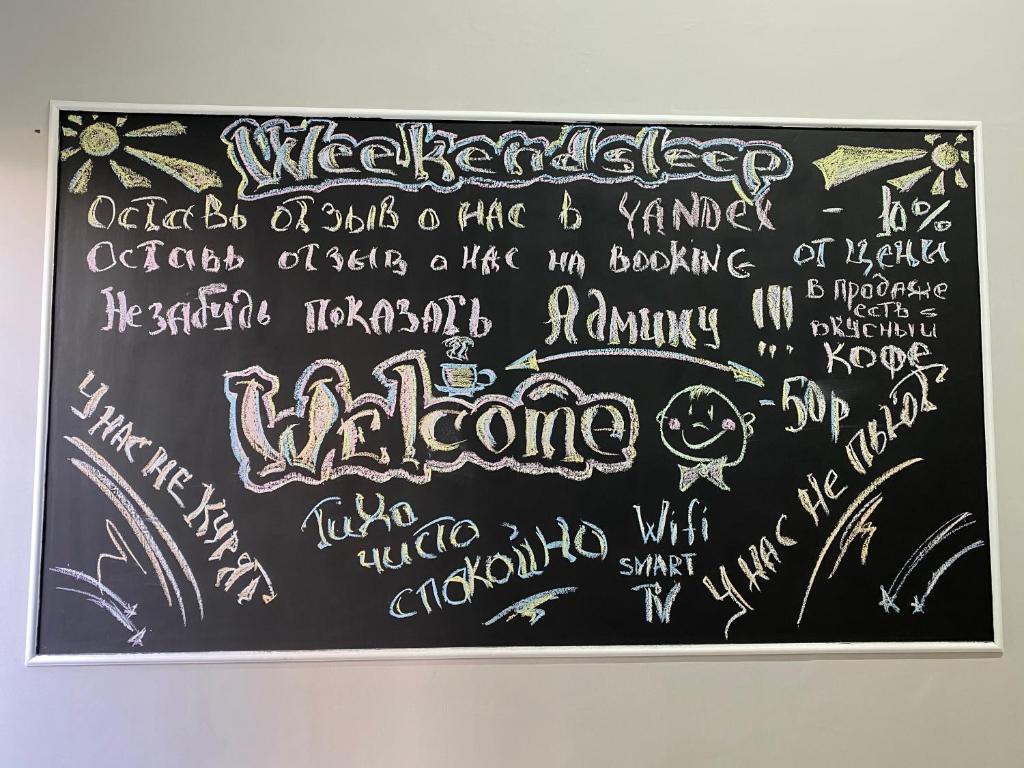 Weekendsleep
Оставь отзыв о нас в YANDEX - 10%
Оставь отзыв о нас на BOOKING от цены
Незабудь показать Админу !!!
В продаже
есть
вкусный
КОФЕ
-50р
Welcome
У НАС НЕ КУРЯТ
Тихо
чисто
спокойно
Wifi
SMART
TV
У НАС НЕ ПЬЮТ